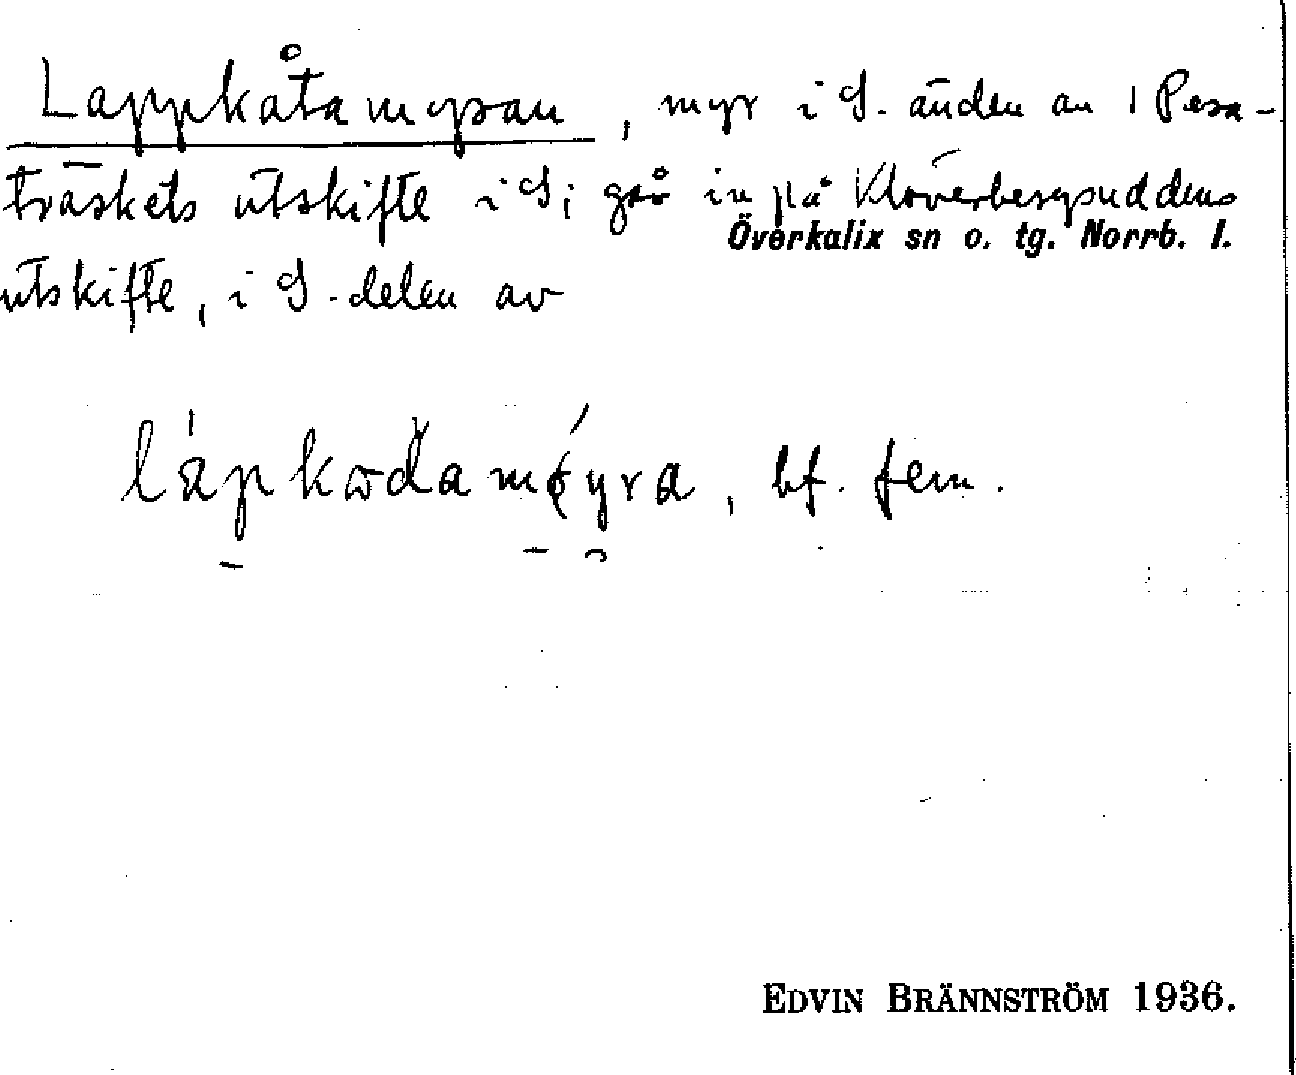 Lappkåtamyran, myr i S. änden av 1 Pesa-
träskets utskifte i S; går in på Klöverbergsuddens
Överkalix sn o. tg. Norrb. l.
utskifte, i S-delen av
bf. fem.
EDVIN BRÄNNSTRÖM 1936.